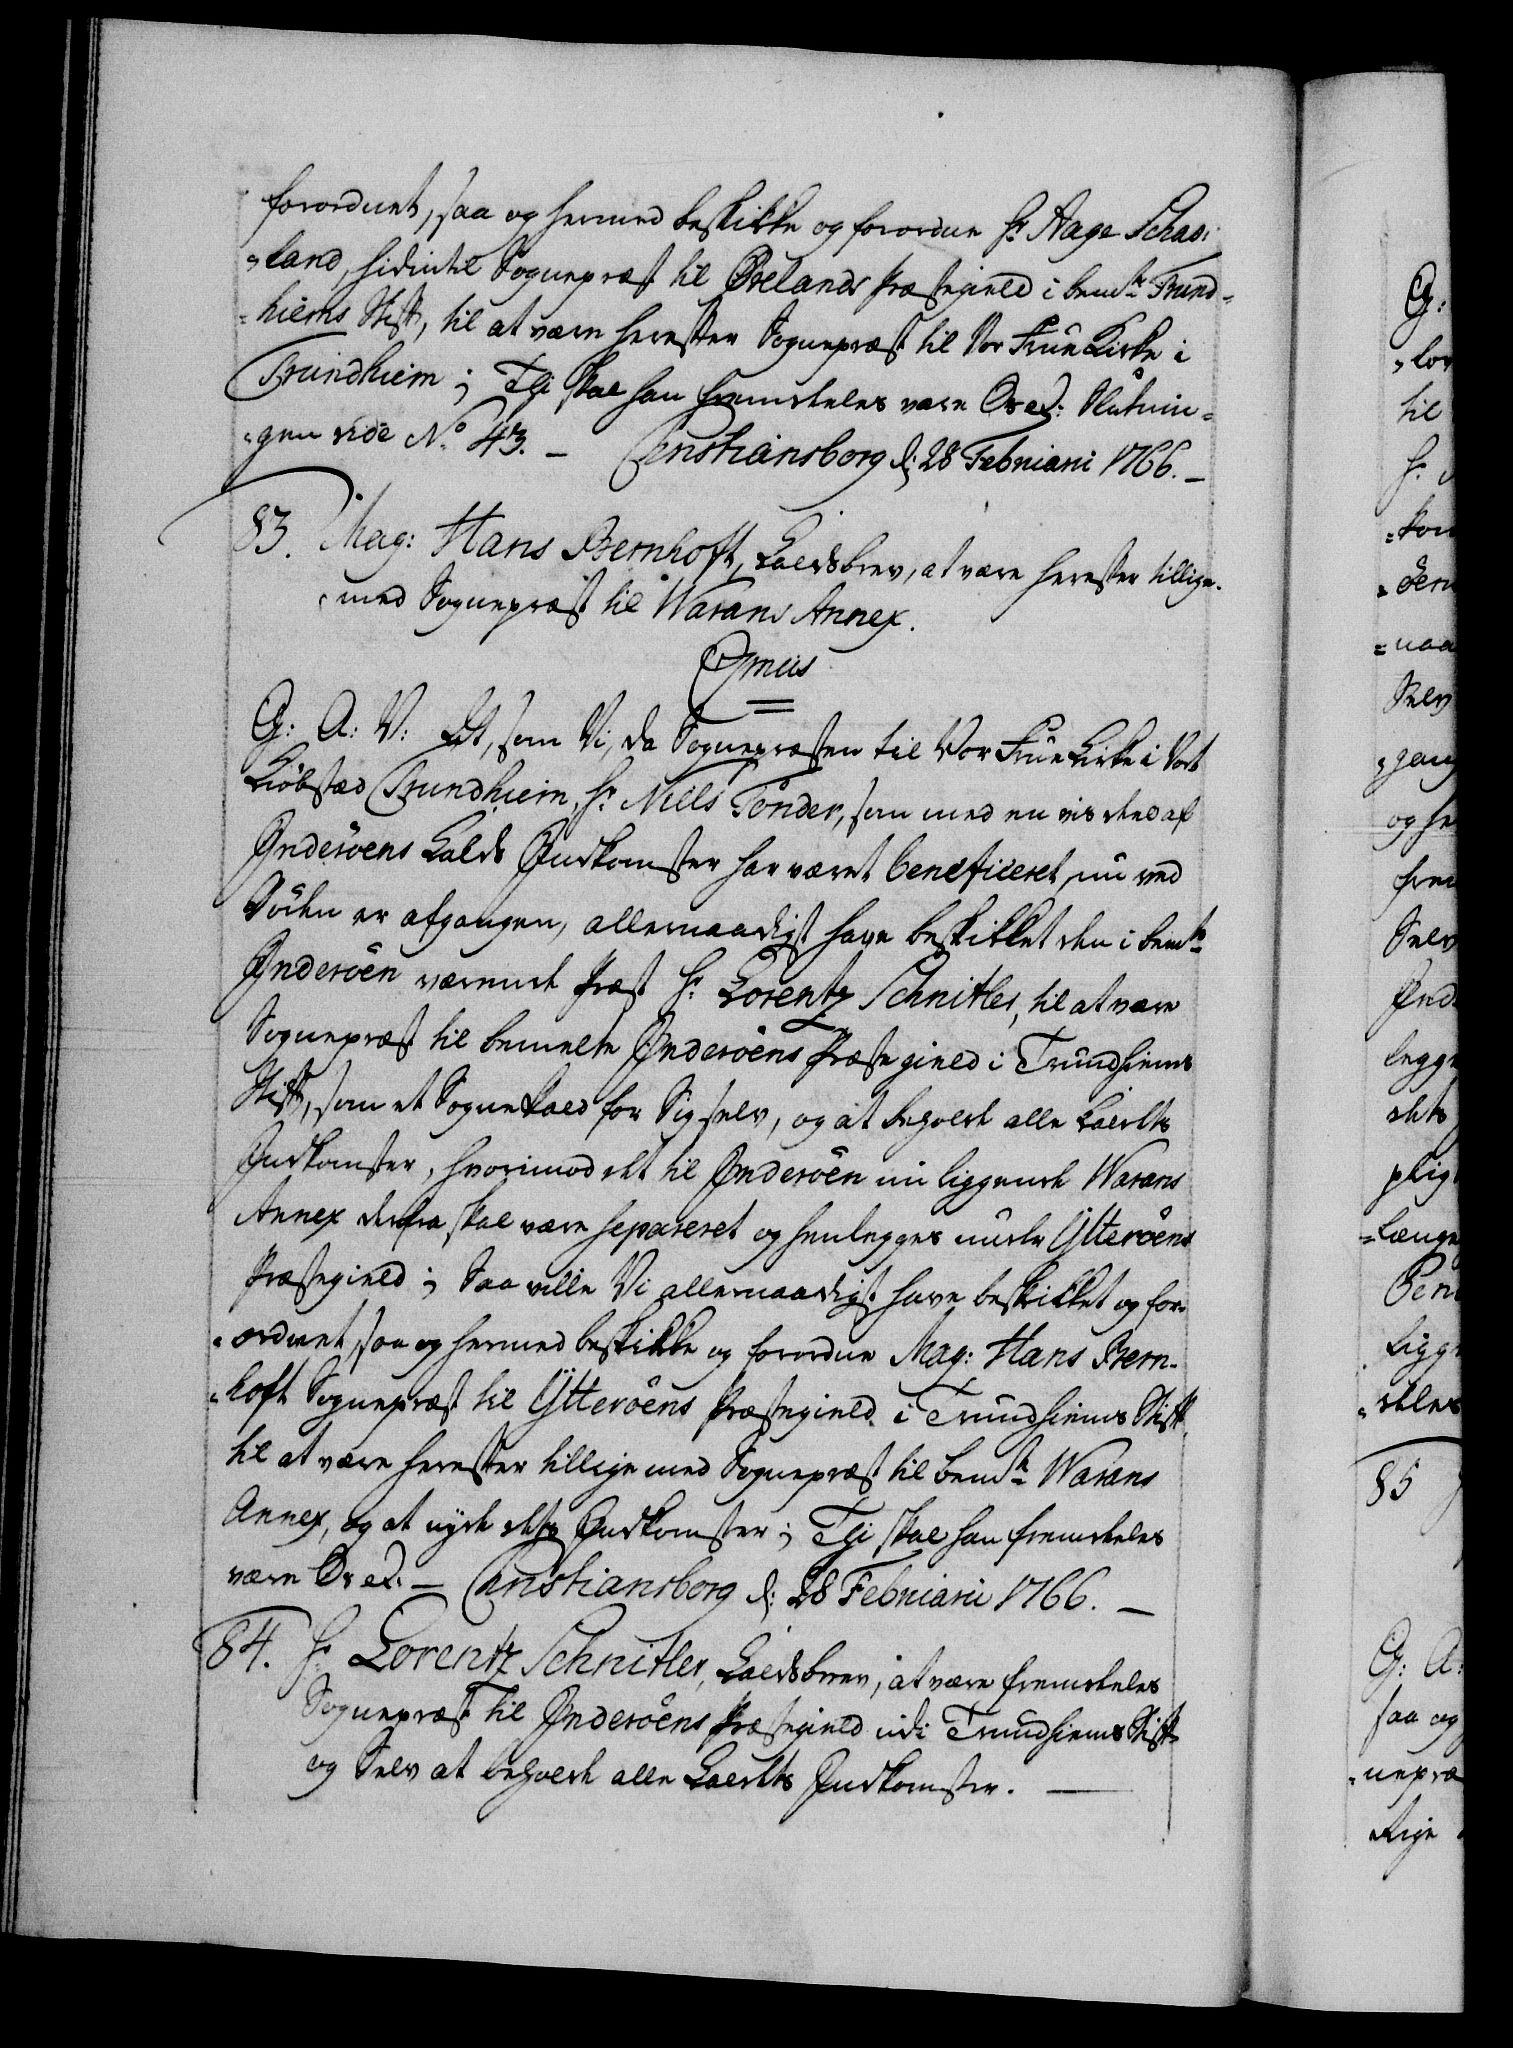 forordnet, saa og hermed beskikke og forordne Hr Aage Schav-
-land, hidintil Sognepræst til Ørelands Præstegield i bemte Trund-
-hiems Stift, til at være herefter Sognepræst til Vor Frue Kirke i
Trundhiem; Thi skal han fremdeles være Os ec: Slutnin-
-gen vide No 43. – Christiansborg d: 28 Februarii 1766. –
83. Mag: Hans Bernhoft, Kaldsbrev, at være herefter tillige-
-med Sognepræst til Warans Annex.
Qmus
G: A: V: At, som Vi, da Sognepræsten til Vor Frue Kirke i Vort
Kiøbstæd Trundhiem, Hr Niels Tønder, som med en vis deel af
Inderøens Kalds Indkomster har været beneficeret, nu ved
Døden er afgangen, allernaadigst have beskikket den i bemte
Inderøen værende Præst Hr Lorentz Schnitler, til at være
Sognepræst til bemelte Inderøens Præstegield i Trundhiems
Stift, som et Sognekald for Sig selv, og at beholde alle Kaldets
Indkomster, hvorimod det til Inderøen nu liggende Warans
Annex derfra skal være separeret og henlegges under Ytterøens
Præstegield; Saa ville Vi allernaadigst have beskikket og for-
-ordnet, saa og hermed beskikke og forordne Mag: Hans Bern-
-hoft Sognepræst til Ytterøens Præstegield i Trundhiems Stift,
til at være herefter tilligemed Sognepræst til bemte Warans
Annex, og at nyde dets Indkomster; Thi skal han fremdeles
være Os ec: – Christiansborg d: 28 Februarii 1766. –
84. Hr Lorentz Schnitler, Kaldsbrev, at være fremdeles
Sognepræst til Inderøens Præstegield udi Trundhiems Stift
og Selv at beholde alle Kaldets Indkomster. –
G:
til
85
G: A:
saa og